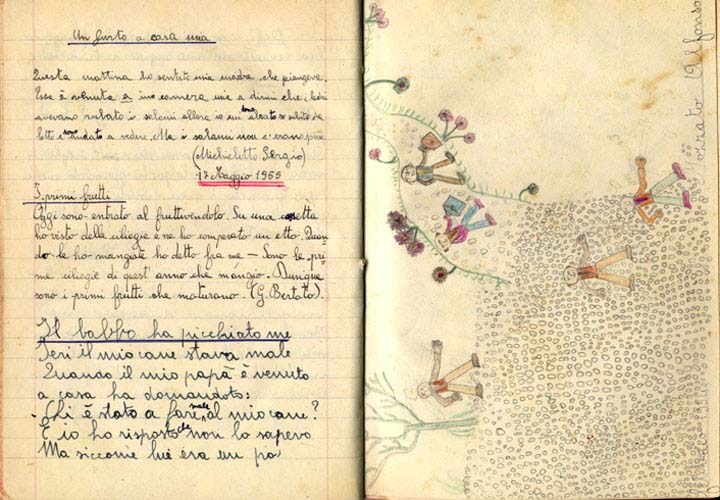 Un furto a casa mia
Questa mattina ho sentito mia madre che piangeva.
Essa è venuta a in camera mia a dirmi che i ladri
avevano rubato i salami allora io mi sono alzato subito da
letto e sono andato a vedere. Ma i salami non c'erano più
(Michieletto Sergio)
17 Maggio 1955
I primi frutti
Oggi sono entrato al fruttivendolo. Su una cassetta
ho visto delle ciliegie e ne ho comperato un etto. Quan-
do le ho mangiate ho detto fra me – Sono le pri-
me ciliegie di quest'anno che mangio. Dunque
sono i primi frutti che maturano. (G. Bertato).
Il babbo ha picchiato me
Ieri il mio cane stava male
Quando il mio papà è venuto
a casa ha domandato:
- Chi è stato a fare male al mio cane?
E io ho risposto che non lo sapevo
Ma siccome lui era un po'
Alfonso